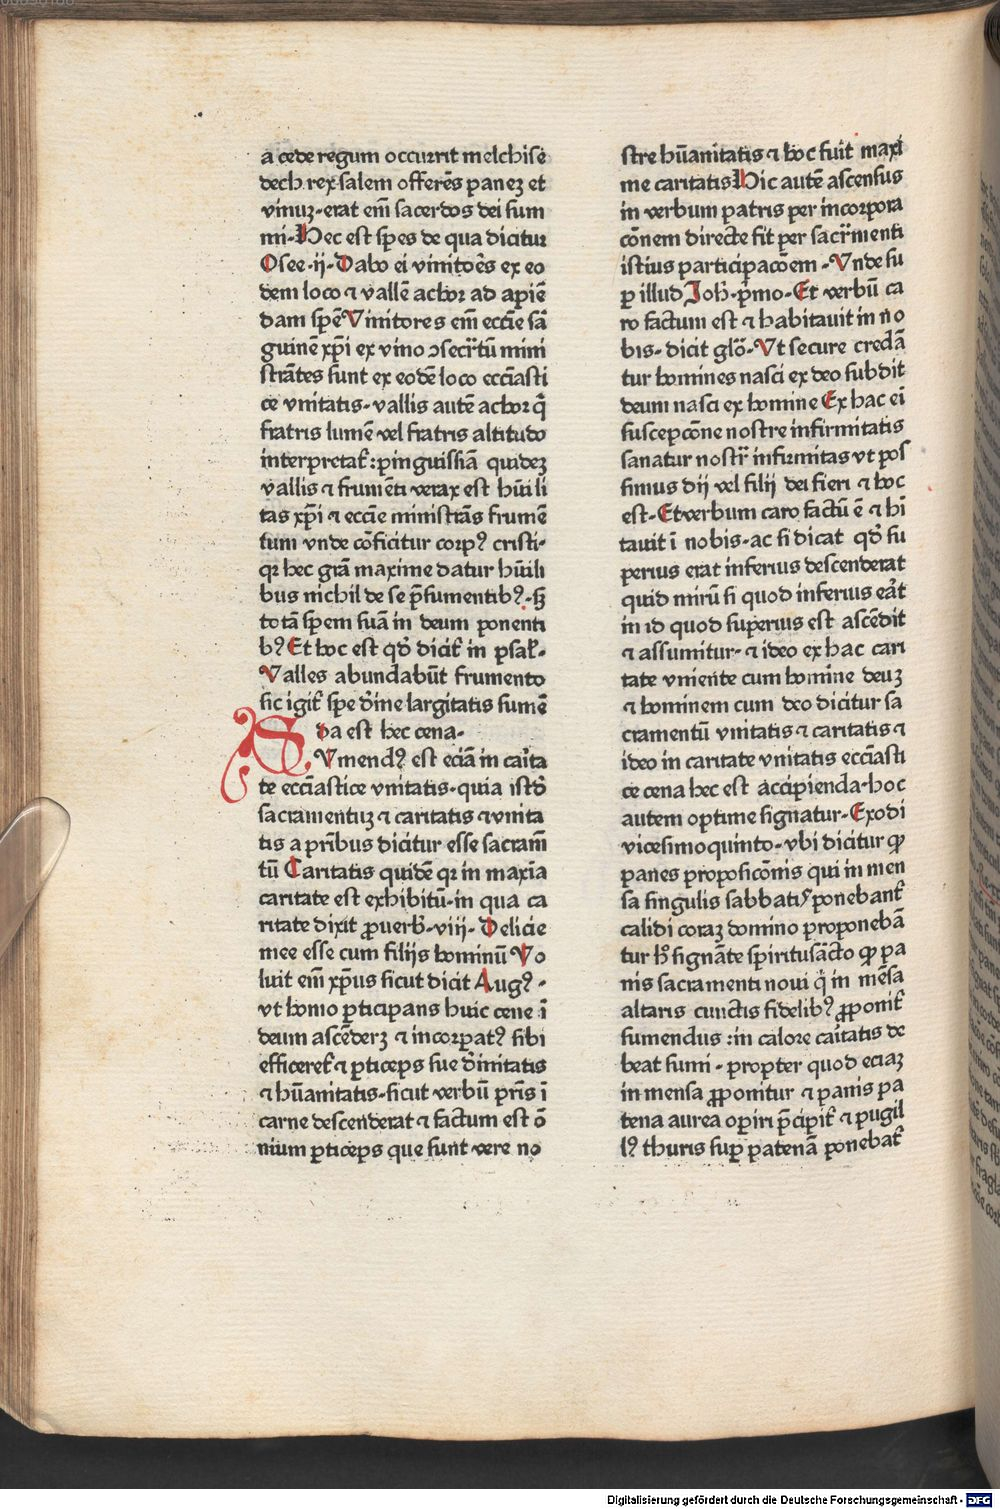 a cede regum occurrit melchise
dech rex salem offerēs paneʒ et
vinuʒ·erat em̄ sacerdos dei sum
mi·Hec est spes de qua dicitur
Osee·ii·Dabo ei vinitorēs ex eo
dem loco ⁊ vallē achor ad apiē
dam spēꝫ Vinitores em̄ ecc̄ie sā
guinem xp̄i ex vino ↄsecr̄tū mini
strātes sunt ex eodē loco ecc̄iasti
ce vnitatis·vallis autē achor q̄
fratris lumē vel fratris altitudo
interpretat᷑:pinguissiā quideʒ
vallis ⁊ frumēti verax est hūili
tas xp̄i ⁊ ecc̄ie ministrās frumē
tum vnde cōficitur corpꝰ cristi·
qꝛ hec grā maxime datur hūili
bus nichil de se p̄sumentibꝰ·sꝫ
totā spem suā in deum ponenti
bꝰ Et hoc est qd̄ dicit᷑ in psal᷑·
Valles abundabūt frumento
sic igit᷑ spe dīne largitatis sumē
da est hec cena·
SVmendꝰ est eciā in caīta
te ecc̄iastice vnitatis·quia istd̄
sacramentuʒ ⁊ caritatis ⁊vnita
tis a pr̄ibus dicitur esse sacram̄
tū Caritatis quidē qꝛ in maxīa
caritate est exhibitū·in qua ca
ritate dixit ꝓuerb̄·viij·Delicie
mee esse cum filijs hominū Vo
luit em̄ xp̄us sicut dicit Augꝰ·
vt homo ꝑticipans huic cene ī
deum ascēderʒ ⁊ incorpatꝰ sibi
efficeret᷑ ⁊ ꝑticeps sue dīnitatis
⁊ hūanitatis·sicut verbū pr̄is ī
carne descenderat ⁊ factum est ō
nium ꝑticeps que sunt vere no
stre hūanitatis ⁊ hoc fuit maxi
me caritatis Hic autē ascensus
in verbum patris per incorpora
cōnem directe fit per sacr̄menti
istius participacōem·Vnde su
ꝑ illud Ioh̄·p̄mo·Et verbū ca
ro factum est ⁊ habitauit in no
bis·dicit glō·Vt secure credā
tur homines nasci ex deo subdit
deum nasci ex homine Ex hac ei̅
suscepcōne nostre infirmitatis
sanatur nostr̄ infirmitas vt pos
simus dij vel filij dei fieri ⁊ hoc
est·Et verbum caro factū ē ⁊ hī
tauit ī nobis·ac si dicat qd̄ su
perius erat inferius descenderat
quid mirū si quod inferius eāt
in id quod superius est ascēdit
⁊ assumitur·⁊ ideo ex hac cari
tate vniente cum homine deuʒ
⁊ hominem cum deo dicitur sa
cramentū vnitatis ⁊ caritatis ⁊
ideo in caritate vnitatis ecc̄iasti
ce cena hec est accipienda·hoc
autem optime signatur·Exodi
vicesimoquinto·vbi dicitur ꝙ
panes proposicōnis qui in men
sa singulis sabbatis ponebant᷑
calidi coraʒ domino proponebā
tur hͦ signāte spiritusācto ꝙ pa
nis sacramenti noui q̄ in mēsa
altaris cunctis fidelibꝰ ꝓponit᷑
sumendus:in calore caītatis de
beat sumi·propter quod eciaʒ
in mensa ꝓponitur ⁊ panis pa
tena aurea operiri p̄cipit᷑ ⁊ pugil
lꝰ thuris suꝑ patenā ponebat᷑
Digitalisierung gefördert durch die Deutsche Forschungsgemeinschaft - DFG